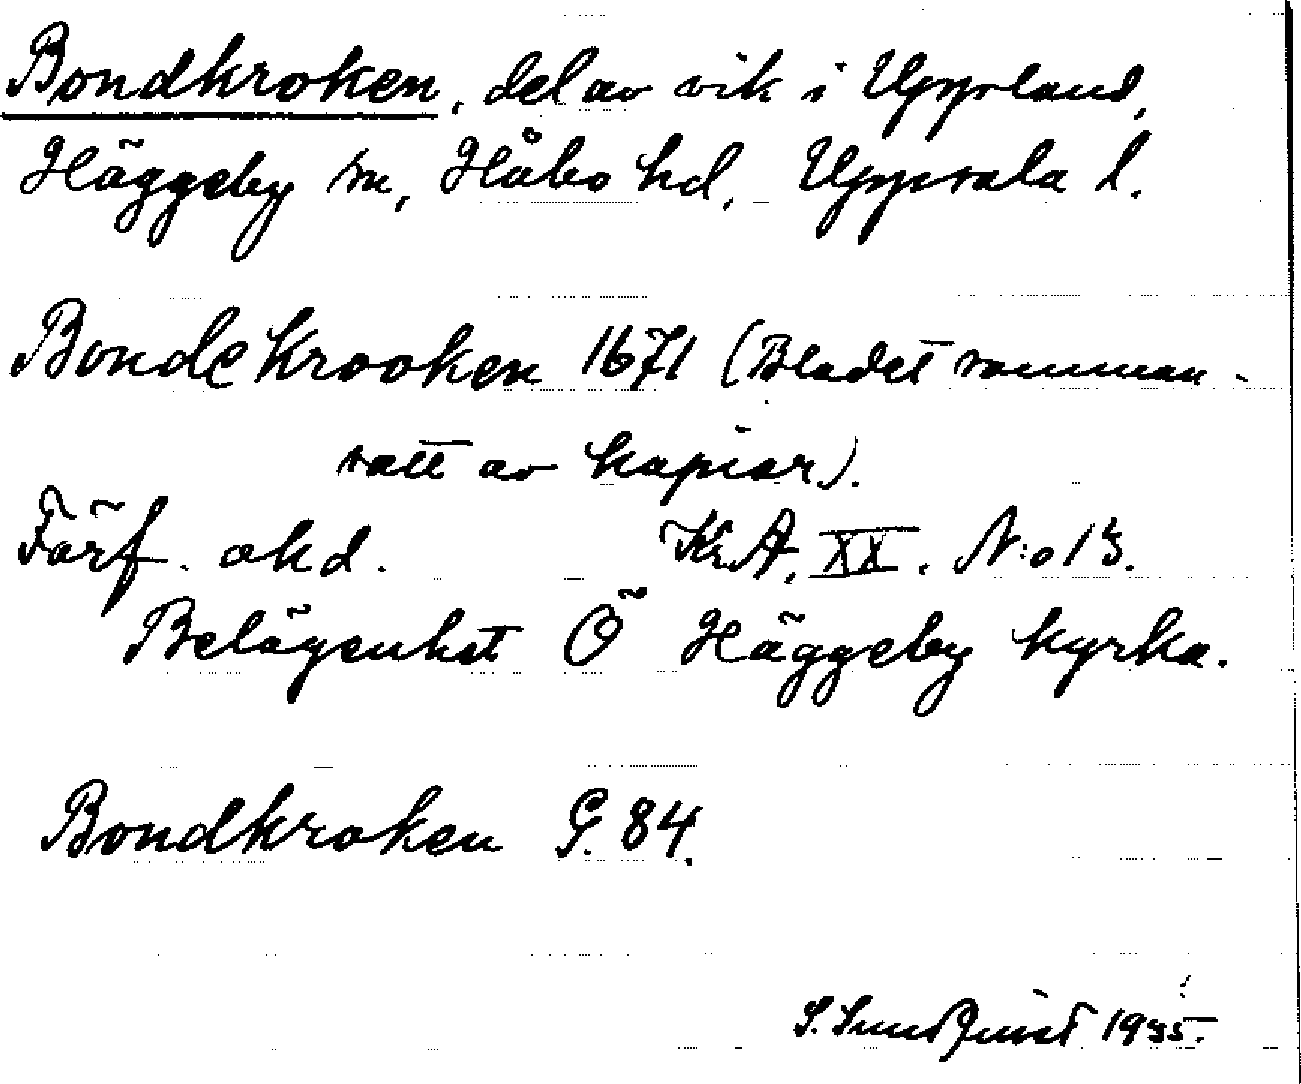 Bondkroken, del av vik i Uppland,
Häggeby sn, Håbo hd, Uppsala l.
Bondekrooken 1671 (Bladet samman-
satt av kopior).
Förf. okd. Kr.A. XX. N:o 13.
Belägenhet Ö Häggeby kyrka.
Bondkroken G. 84.
S. Sundquist 1935.